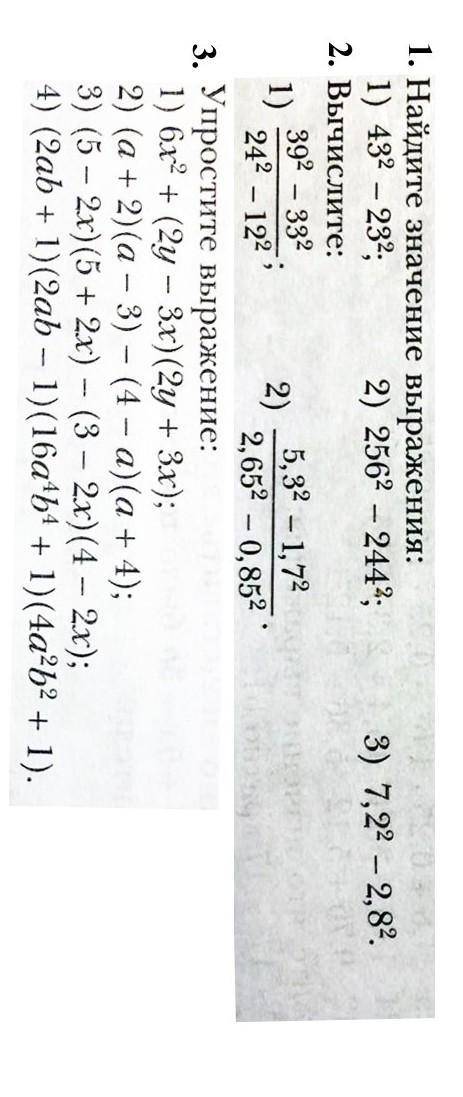 1. Найдите значение выражения:
1) 43² – 23²; 2) 256² – 244²; 3) 7,2² – 2,8².
2. Вычислите:
1) (39² – 33²)/(24² – 12²); 2) (5,3² – 1,7²)/(2,65² – 0,85²).
3. Упростите выражение:
1) 6x² + (2y – 3x)(2y + 3x);
2) (a + 2)(a – 3) – (4 – a)(a + 4);
3) (5 – 2x)(5 + 2x) – (3 – 2x)(4 – 2x);
4) (2ab + 1)(2ab – 1)(16a⁴b⁴ + 1)(4a²b² + 1).